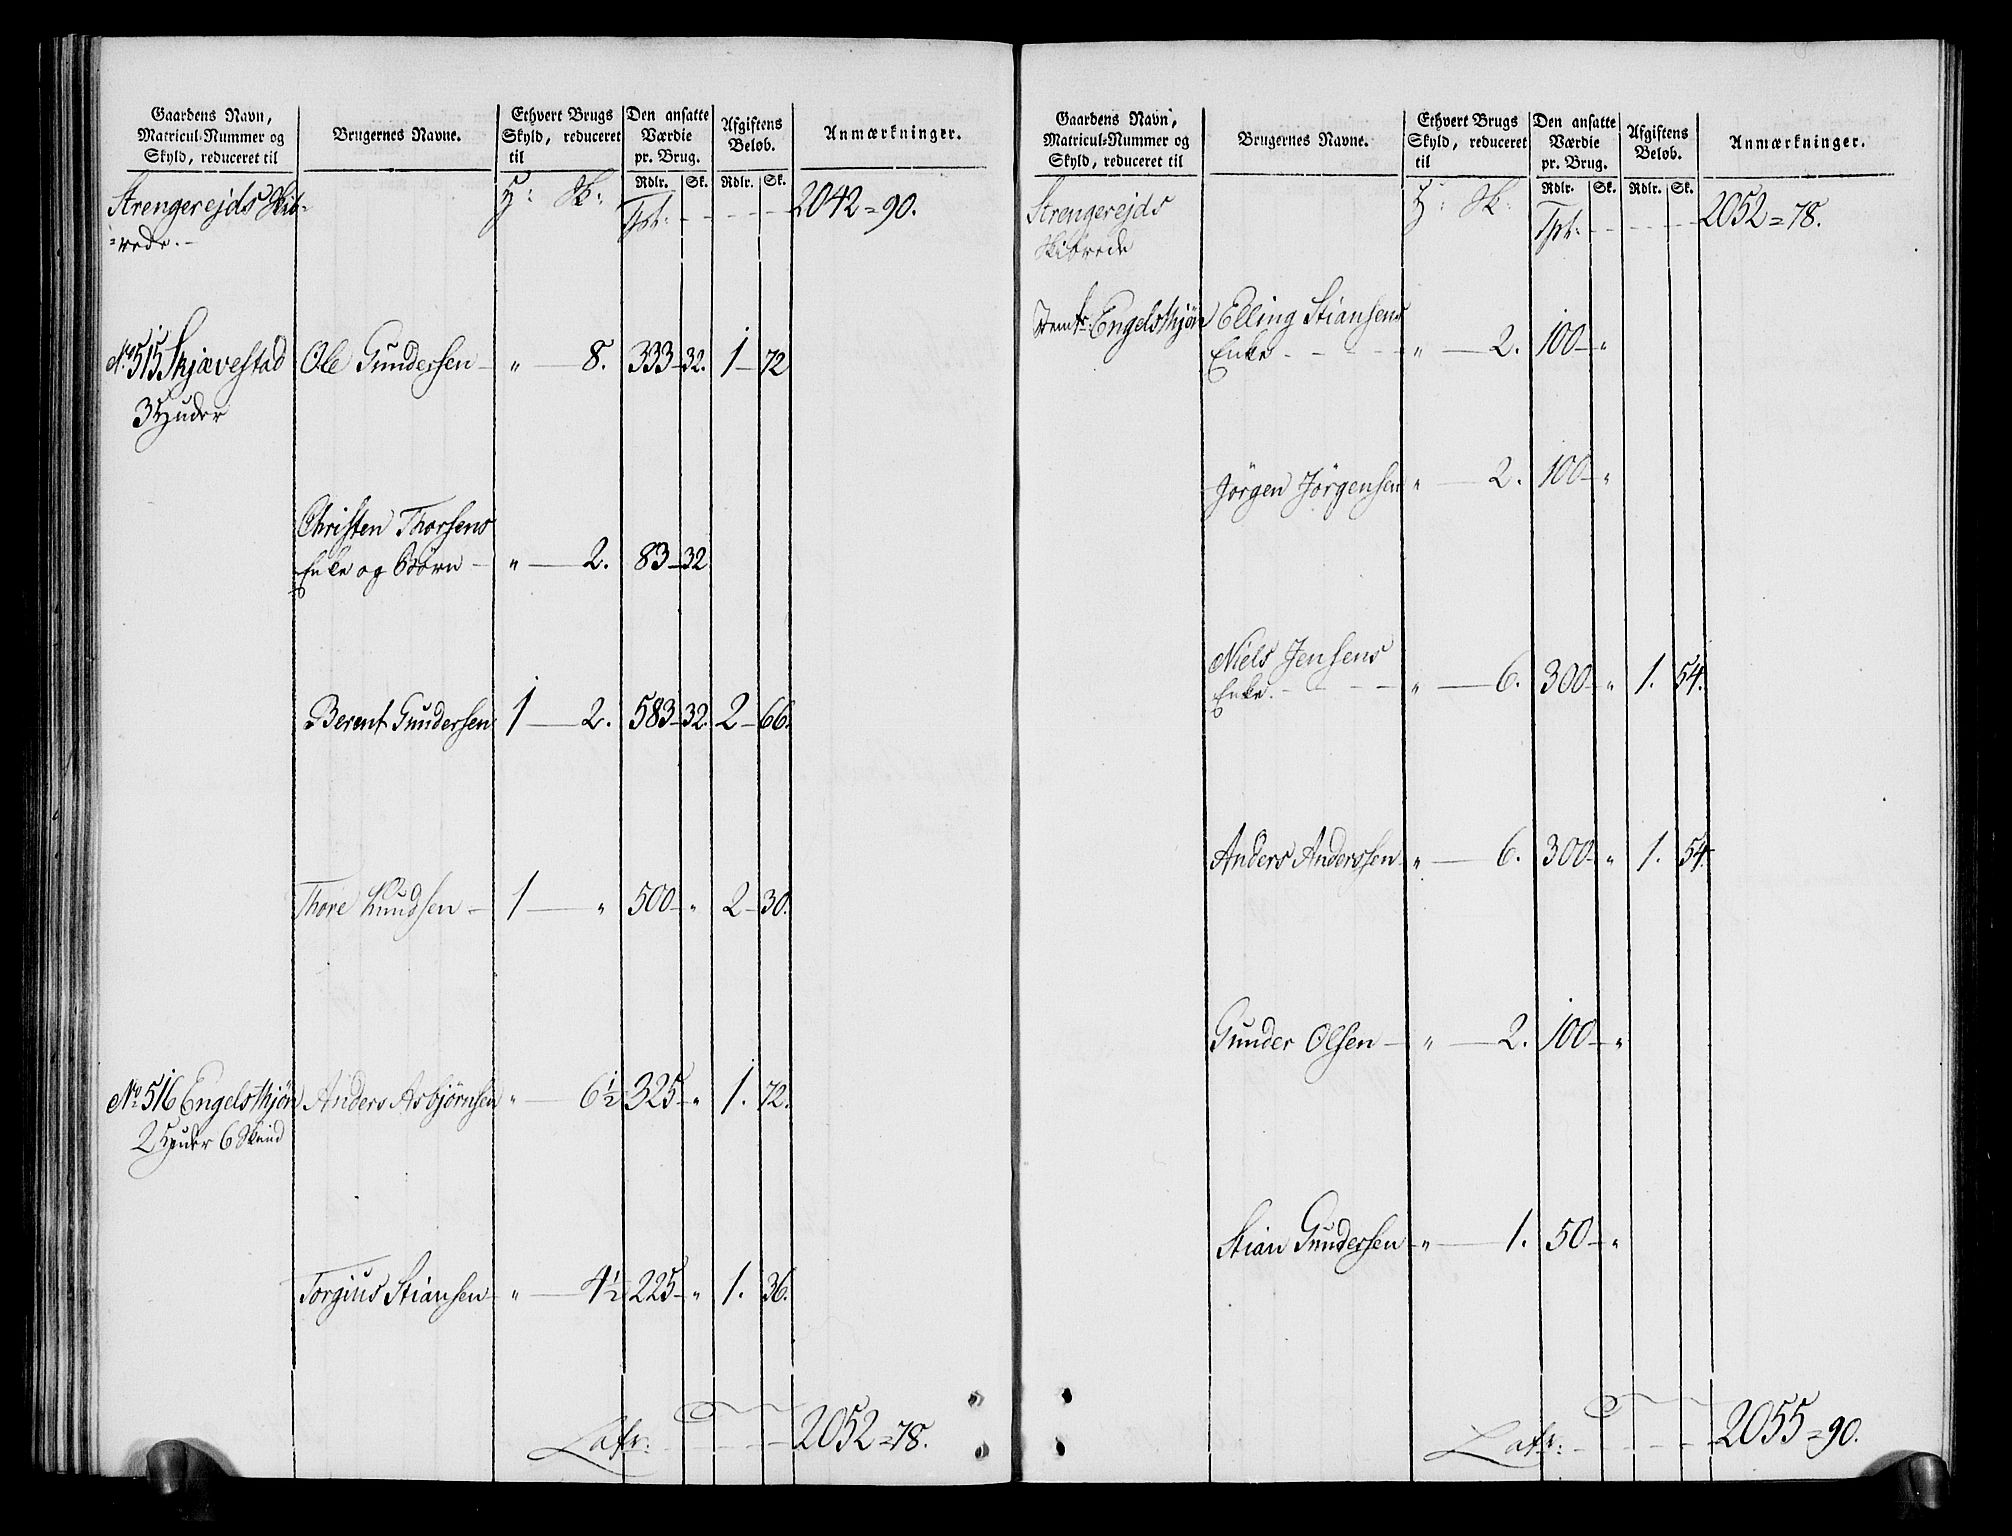 Gaardens Navn,
Matricul-Nummer og
Skyld, reduceret til
Brugernes Navne.
Ethvert Brugs
Skyld, reduceret
til
Den ansatte
Værdie
pr. Brug.
Afgiftens
Beløb.
Anmærkninger.
Rdlr. Sk. Rdlr. Sk.
Strengerejds Skib-
=rede.-
H: Sk: Tpt: 2042=90.
No. 515 Skjævestad Ole Gundersen - " - 8. 333 - 32. 1 - 72
3 Huder
Christen Thorsens
Enke og Børn - " - 2. 83 - 32
Berent Gundersen 1 - 2. 583 - 32. 2 - 66.
Thore Knudsen - 1 - " 500 - " 2 - 30.
No. 516 Engelskjøn Anders Asbjørnsen " - 6½ 325 - " 1. 72.
2 Huder 6 Skind
Torgius Stiansen - " - 4½ 225 - " 1. 36.
Lafr: 2052=78.
Gaardens Navn,
Matricul-Nummer og
Skyld, reduceret til
Brugernes Navne.
Ethvert Brugs
Skyld, reduceret
til
Den ansatte
Værdie
pr. Brug.
Afgiftens
Beløb.
Anmærkninger.
Rdlr. Sk. Rdlr. Sk.
Strengerejds
Skibrede
H: Sk: Tpt: 2052=78.
Engelskjøn Elling Stiansens
Enke - " - 2. 100 - "
Jörgen Jörgensen " - 2. 100 - "
Niels Jensens
Enke. - " - 6. 300 - " 1. 54.
Anders Anderssen - " - 6. 300 - " 1. 54.
Gunder Olsen - " - 2. 100 - "
Stian Gundersen - " - 1. 50 - "
Lafr: 2055=90.